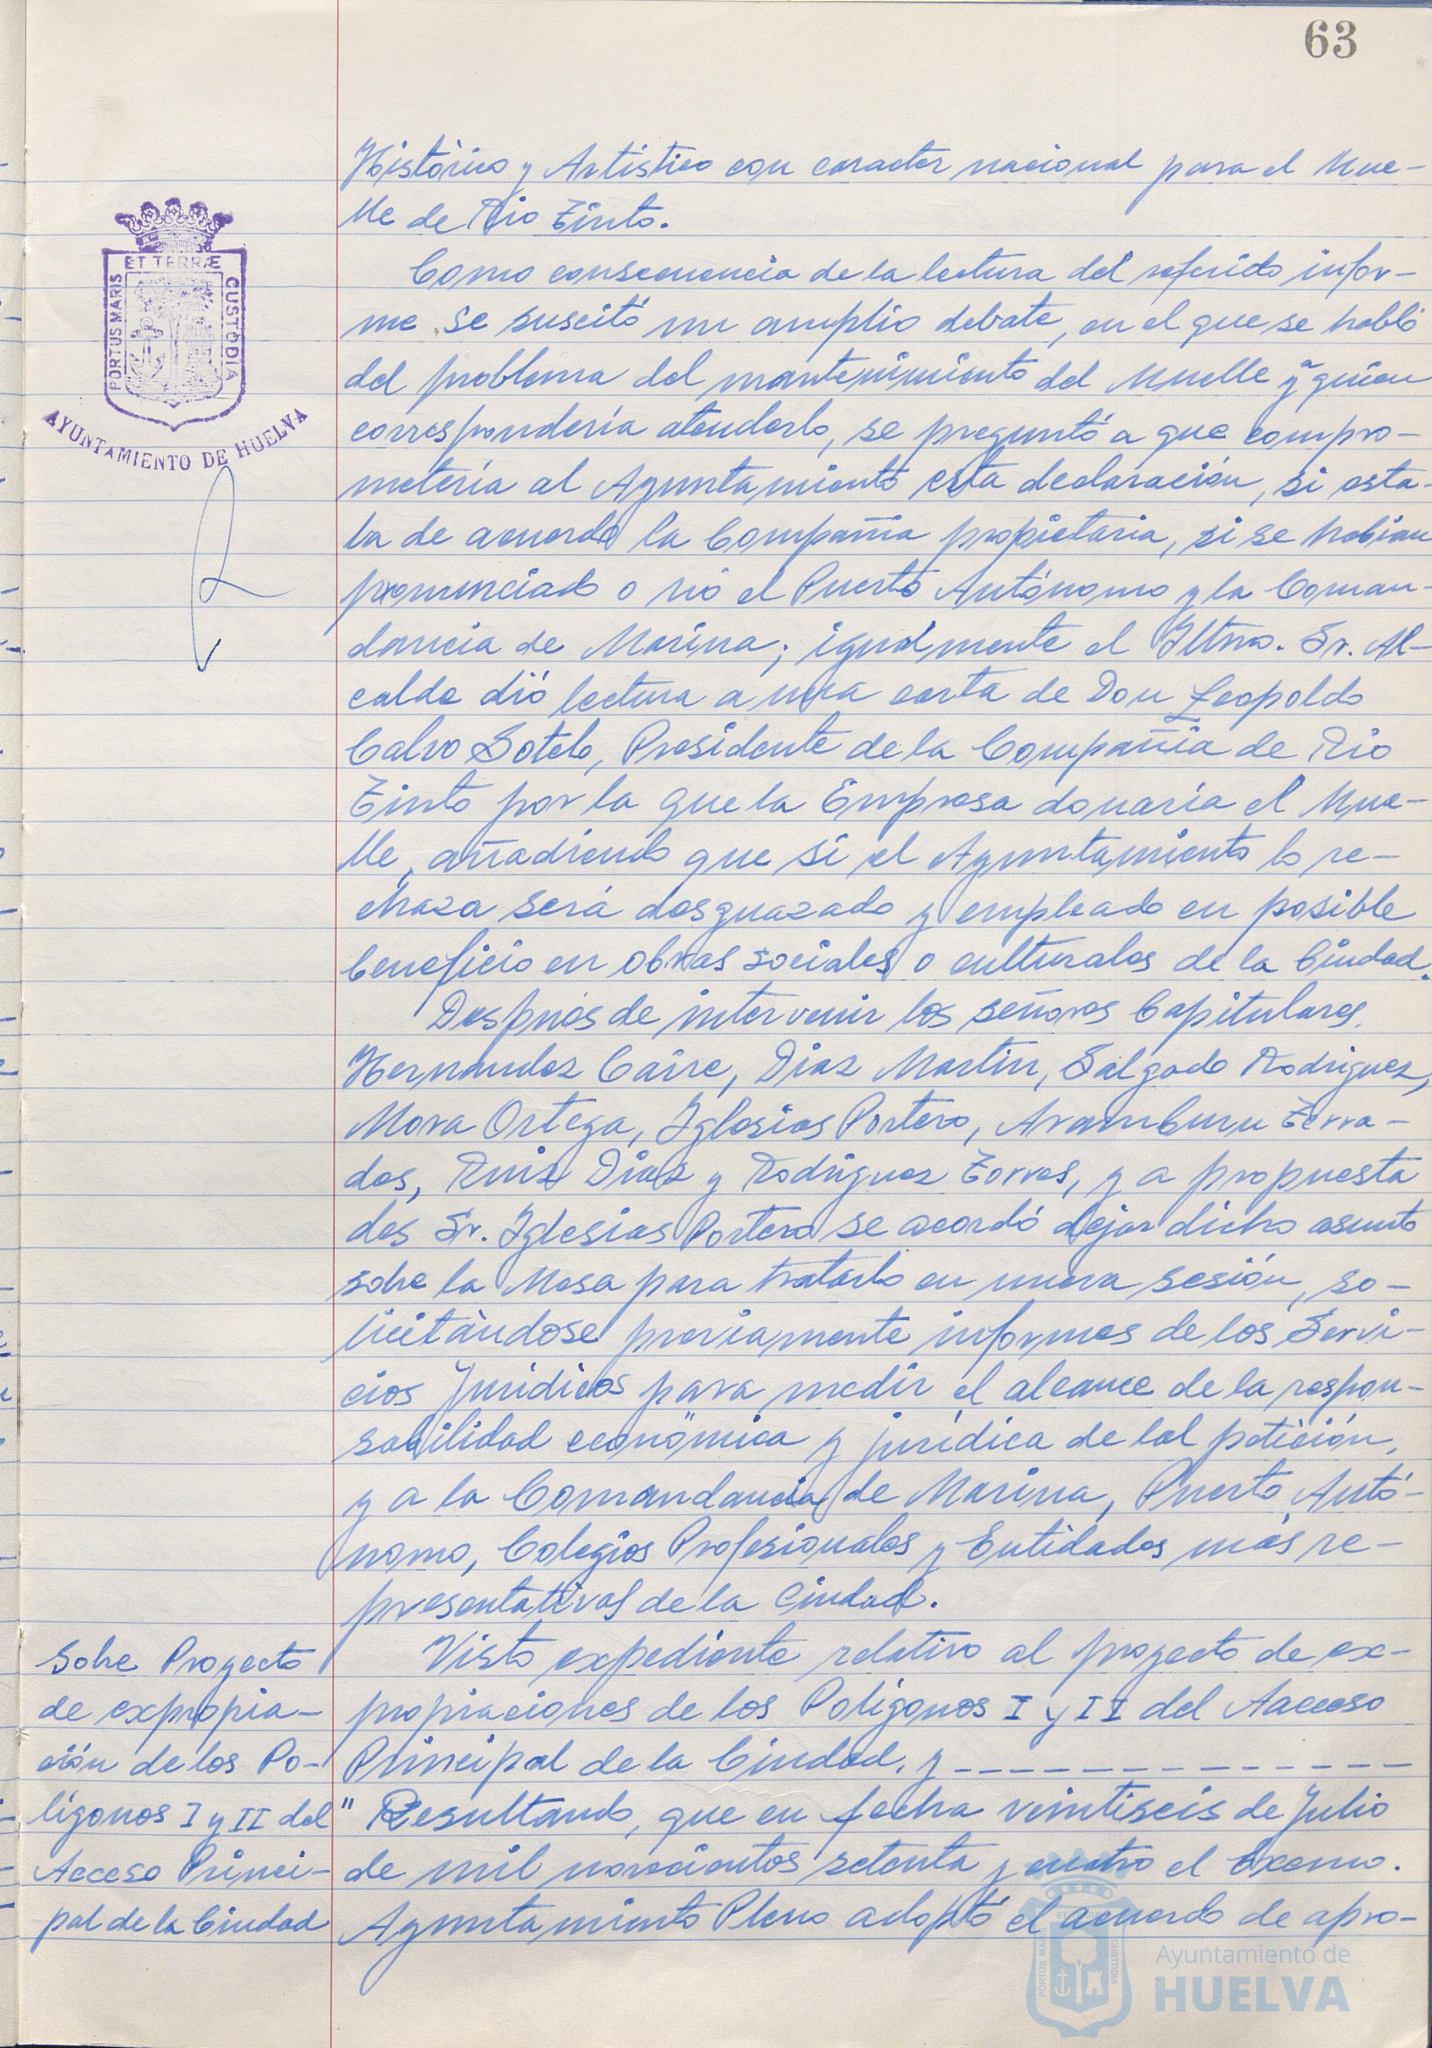 63
Histórico y Artístico con caracter nacional para el Mue-
lle de Rio Tinto.
Como consecuencia de la lectura del referido infor-
me se suscitó un amplio debate, en el que se habló
del problema del mantenimiento del Muelle y quien
correspondería atenderlo, se preguntó a que compro-
metería al Ayuntamiento esta declaración, si esta-
ba de acuerdo la Compañia propietaria, si se habian
pronunciado o nó el Puerto Autónomo y la Coman-
dancia de Marina; igualmente el Iltmo. Sr. Al-
calde dió lectura a una carta de Don Leopoldo
Calvo Sotelo, Presidente de la Compañia de Rio
Tinto por la que la Empresa donaría el Mue-
lle, añadiendo que si el Ayuntamiento lo re-
chaza será desguazado y empleado en posible
beneficio en obras sociales o culturales de la Ciudad.
Después de intervenir los señores Capitulares,
Hernandez Caire, Diaz Martin, Salgado Rodriguez,
Mora Ortega, Iglesias Portero, Aramburu Terra-
des, Ruiz Diaz y Rodriguez Torres, y a propuesta
des Sr. Iglesias Portero se acordó dejar dicho asunto
sobre la Mesa para tratarlo en nueva sesión, so-
licitàndose previamente informes de los Servi-
cios Juridicos para medir el alcance de la respon-
sabilidad económica y jurídica de tal petición,
y a la Comandancia de Marina, Puerto Autó-
nomo, Colegios Profesionales y Entidades más re-
presentativas de la Ciudad.
Sobre Proyecto
de expropia-
ción de los Po-
lígonos I y II del
Acceso Princi-
pal de la Ciudad
Visto expediente relativo al proyecto de ex-
propiaciones de los Polígonos I y II del Aacceso
Principal de la Ciudad, y
" Resultando, que en fecha veintiseis de Julio
de mil novecientos setenta y cuatro el Excmo.
Ayuntamiento Pleno adoptó el acuerdo de apro-
PORTUS MARIS ET TERRÆ CUSTODIA
AYUNTAMIENTO DE HUELVA
Ayuntamiento de
HUELVA